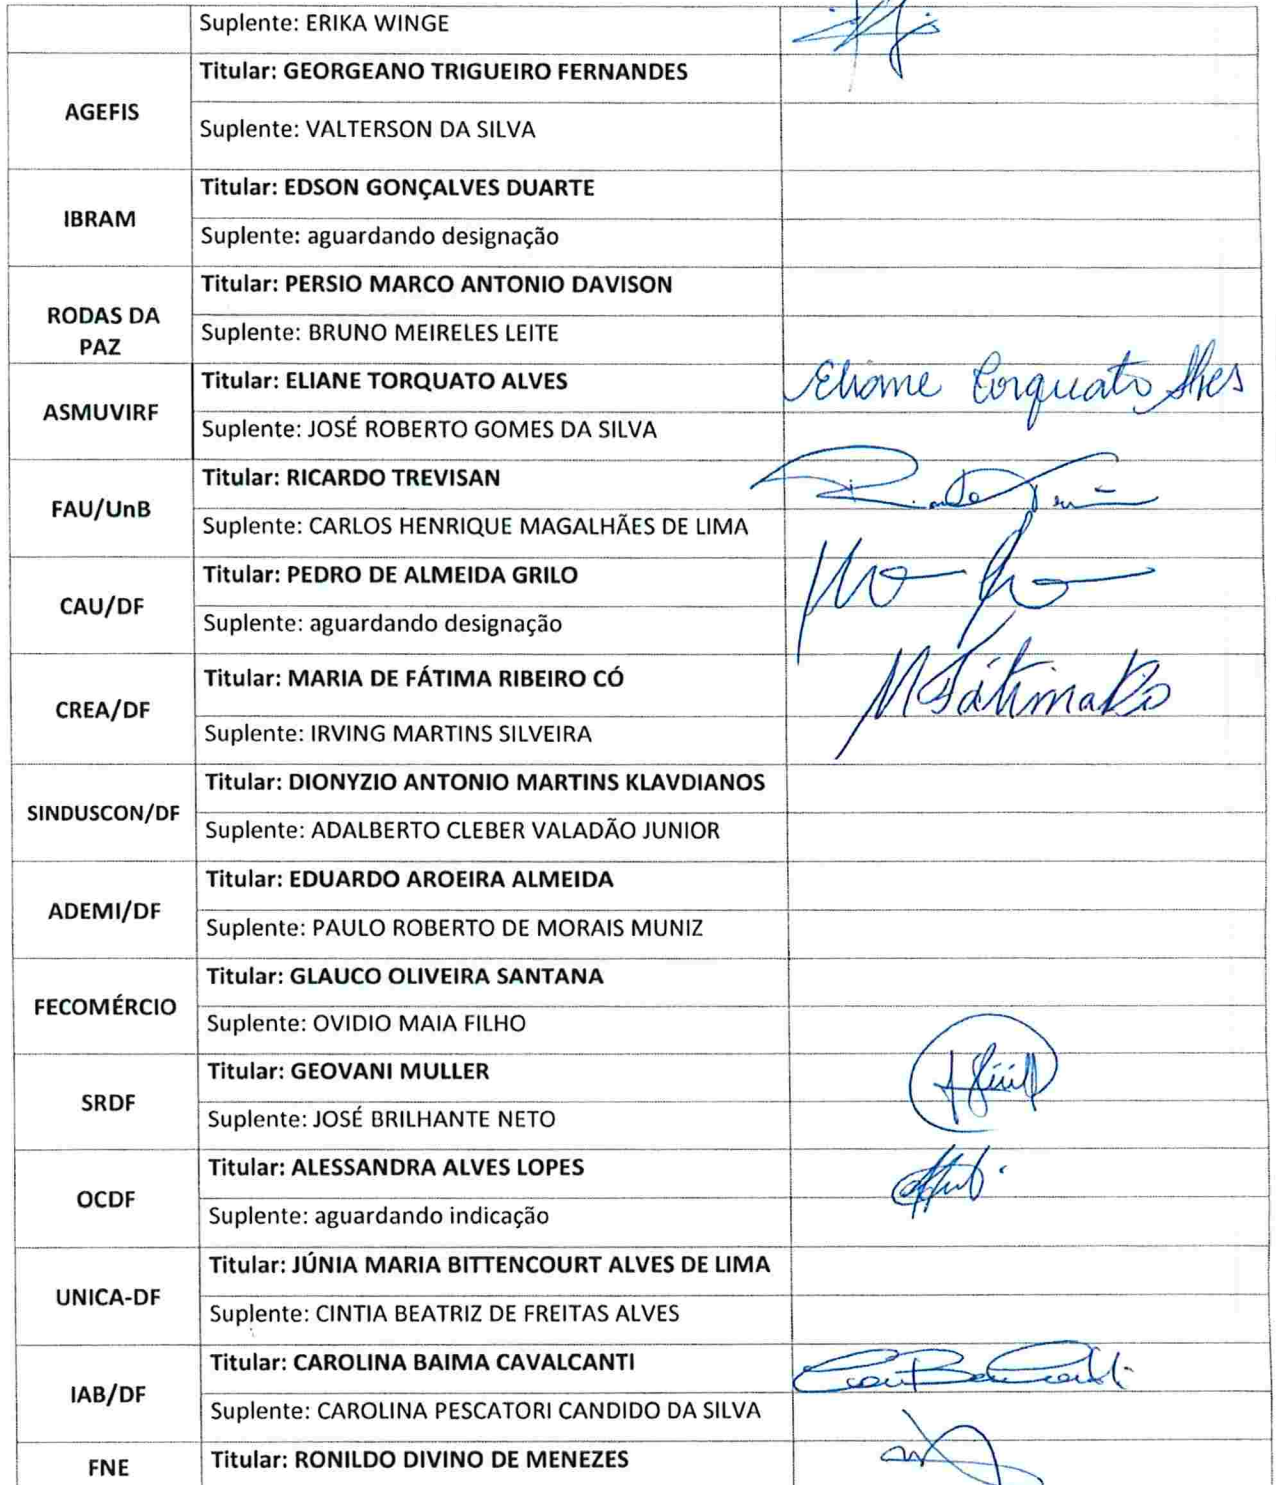 Suplente: ERIKA WINGE
AGEFIS
Titular: GEORGEANO TRIGUEIRO FERNANDES
Suplente: VALTERSON DA SILVA
IBRAM
Titular: EDSON GONÇALVES DUARTE
Suplente: aguardando designação
RODAS DA
PAZ
Titular: PERSIO MARCO ANTONIO DAVISON
Suplente: BRUNO MEIRELES LEITE
ASMUVIRF
Titular: ELIANE TORQUATO ALVES
Eliane Torquato Alves
Suplente: JOSÉ ROBERTO GOMES DA SILVA
FAU/UnB
Titular: RICARDO TREVISAN
Suplente: CARLOS HENRIQUE MAGALHÃES DE LIMA
CAU/DF
Titular: PEDRO DE ALMEIDA GRILO
Suplente: aguardando designação
CREA/DF
Titular: MARIA DE FÁTIMA RIBEIRO CÓ
M Fátima Có
Suplente: IRVING MARTINS SILVEIRA
SINDUSCON/DF
Titular: DIONYZIO ANTONIO MARTINS KLAVDIANOS
Suplente: ADALBERTO CLEBER VALADÃO JUNIOR
ADEMI/DF
Titular: EDUARDO AROEIRA ALMEIDA
Suplente: PAULO ROBERTO DE MORAIS MUNIZ
FECOMÉRCIO
Titular: GLAUCO OLIVEIRA SANTANA
Suplente: OVIDIO MAIA FILHO
SRDF
Titular: GEOVANI MULLER
Suplente: JOSÉ BRILHANTE NETO
OCDF
Titular: ALESSANDRA ALVES LOPES
Suplente: aguardando indicação
UNICA-DF
Titular: JÚNIA MARIA BITTENCOURT ALVES DE LIMA
Suplente: CINTIA BEATRIZ DE FREITAS ALVES
IAB/DF
Titular: CAROLINA BAIMA CAVALCANTI
Suplente: CAROLINA PESCATORI CANDIDO DA SILVA
FNE
Titular: RONILDO DIVINO DE MENEZES